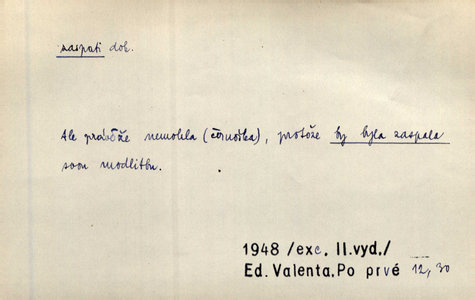 zaspati dok.
Ale právěže nemohla (černoška), protože by byla zaspala
svou modlitbu.
1948 /exc. II.vyd./
Ed. Valenta, Po prvé 12, 30